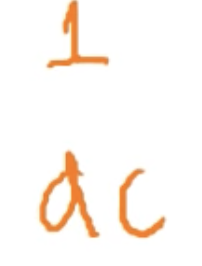 1
ac